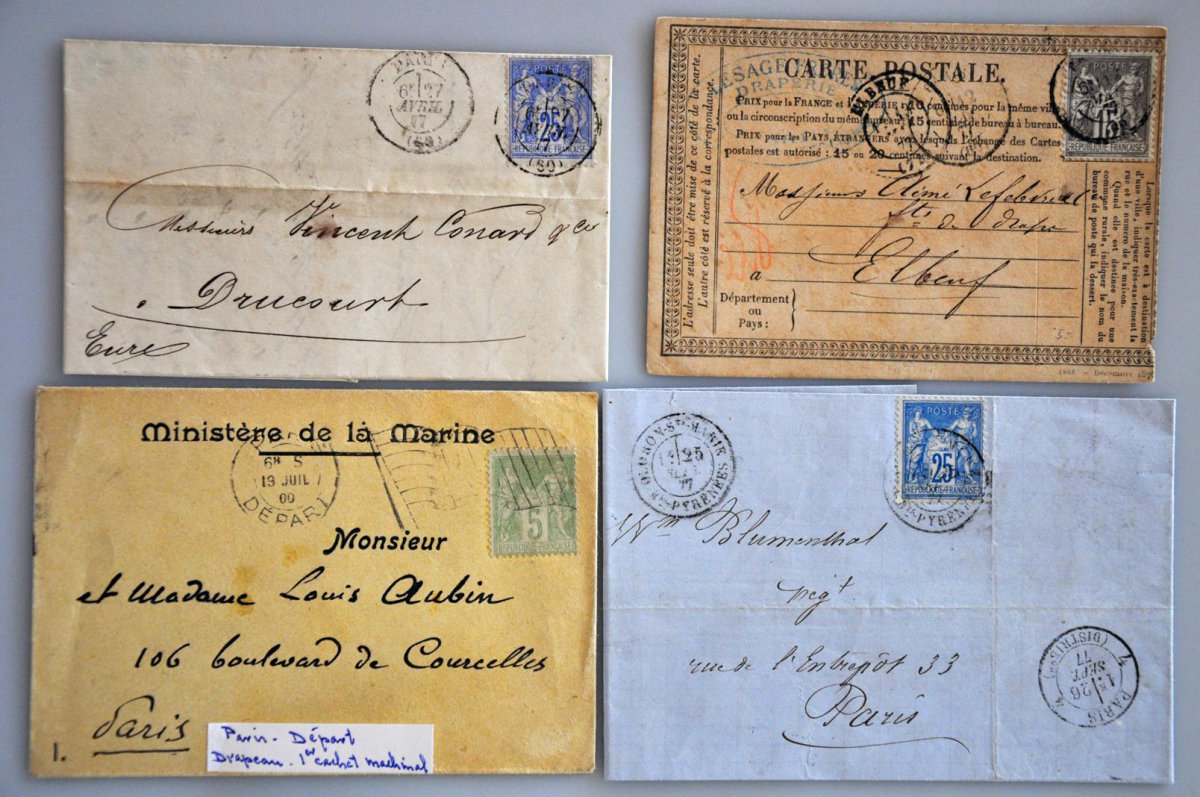 PARIS
6E 27
AVRIL
(60)
POSTE
25
REPUBLIQUE FRANÇAISE
(60)
Messieurs Vincent Conard & Cie
à Drucourt
Eure
CARTE POSTALE.
LESAGE
DRAPERIE
PRIX pour la FRANCE et l'ALGÉRIE : 10 centimes pour la même ville
ou la circonscription du même bureau; 15 centimes de bureau à bureau.
PRIX pour les PAYS ÉTRANGERS avec lesquels l'échange des Cartes
postales est autorisé : 15 ou 20 centimes suivant la destination.
ELBEUF
POSTE
15
REPUBLIQUE FRANÇAISE
L'adresse seule doit être mise de ce côté de la carte.
L'autre côté est réservé à la correspondance.
Messieurs Aimé Lefebvre
fts de draps
à Elbeuf
Département
ou
Pays :
Lorsque la carte est à destination
d'une ville, indiquer très-exactement la
rue et le numéro de la maison.
Quand elle est destinée pour une
commune rurale, indiquer le nom du
bureau de poste qui la dessert.
5-
Ministère de la Marine
6H S
19 JUIL
00
DÉPART
5
REPUBLIQUE FRANÇAISE
Monsieur
et Madame Louis Aubin
106 boulevard de Courcelles
Paris
1.
Paris - Départ
Drapeau. 1er cachet machinal
OLORON-STE-MARIE
25
77
BSES-PYRÉNÉES
POSTE
25
REPUBLIQUE FRANÇAISE
PYRÉNÉES
Wm Blumenthal
negt
rue de l'Entrepôt 33
Paris
PARIS
26
SEPT.
77
(DISTRIBON)